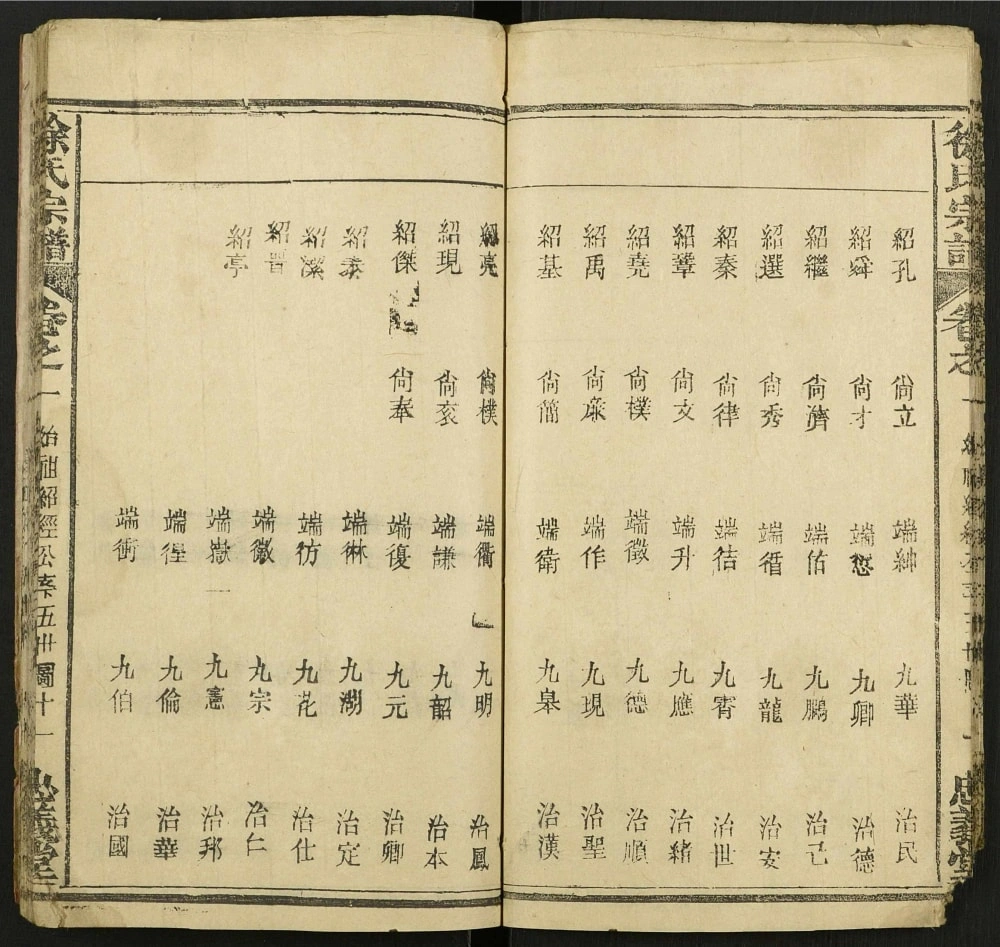 徐氏宗譜
卷之一
忠義堂
紹孔 紹舜 紹繼 紹選 紹秦 紹羣 紹堯 紹禹 紹基
尙立 尙才 尙濟 尙秀 尙律 尙文 尙樸 尙廉 尙簡
端紳 端愻 端佑 端循 端 端升 端徵 端作 端衛
九華 九卿 九鵬 九龍 九霄 九應 九德 九現 九皋
治民 治德 治己 治安 治世 治緒 治順 治聖 治漢
紹亮 紹現 紹傑 紹泰 紹潔 紹晋 紹亭
尙樸 尙衮 尙奉
端衢 端謙 端復 端 端彷 端徽 端嶽 端徨 端衝
九明 九韶 九元 九湖 九花 九宗 九憲 九倫 九伯
治鳳 治本 治卿 治定 治仕 治仁 治邦 治華 治國
徐氏宗譜
卷之一
始祖紹經公來五卅圖十一
忠義堂